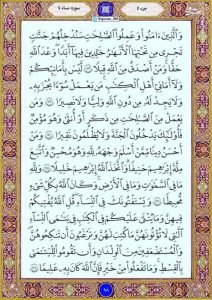 جزء ٥
سوره نساء ٤
وَالَّذِينَ ءَامَنُوا وَعَمِلُوا الصَّٰلِحَٰتِ سَنُدْخِلُهُمْ جَنَّٰتٍ
تَجْرِى مِن تَحْتِهَا الْأَنْهَٰرُ خَٰلِدِينَ فِيهَا أَبَدًا وَعْدَ اللَّهِ
حَقًّا وَمَنْ أَصْدَقُ مِنَ اللَّهِ قِيلًا ١٢٢ لَّيْسَ بِأَمَانِيِّكُمْ
وَلَا أَمَانِىِّ أَهْلِ الْكِتَٰبِ مَن يَعْمَلْ سُوءًا يُجْزَ بِهِ
وَلَا يَجِدْ لَهُ مِن دُونِ اللَّهِ وَلِيًّا وَلَا نَصِيرًا ١٢٣
وَمَن يَعْمَلْ مِنَ الصَّٰلِحَٰتِ مِن ذَكَرٍ أَوْ أُنثَىٰ وَهُوَ مُؤْمِنٌ
فَأُولَٰئِكَ يَدْخُلُونَ الْجَنَّةَ وَلَا يُظْلَمُونَ نَقِيرًا ١٢٤ وَمَنْ
أَحْسَنُ دِينًا مِّمَّنْ أَسْلَمَ وَجْهَهُ لِلَّهِ وَهُوَ مُحْسِنٌ وَاتَّبَعَ
مِلَّةَ إِبْرَٰهِيمَ حَنِيفًا وَاتَّخَذَ اللَّهُ إِبْرَٰهِيمَ خَلِيلًا ١٢٥ وَلِلَّهِ
مَا فِى السَّمَٰوَٰتِ وَمَا فِى الْأَرْضِ وَكَانَ اللَّهُ بِكُلِّ شَىْءٍ
مُّحِيطًا ١٢٦ وَيَسْتَفْتُونَكَ فِى النِّسَاءِ قُلِ اللَّهُ يُفْتِيكُمْ
فِيهِنَّ وَمَا يُتْلَىٰ عَلَيْكُمْ فِى الْكِتَٰبِ فِى يَتَٰمَى النِّسَاءِ
الَّٰتِى لَا تُؤْتُونَهُنَّ مَا كُتِبَ لَهُنَّ وَتَرْغَبُونَ أَن تَنكِحُوهُنَّ
وَالْمُسْتَضْعَفِينَ مِنَ الْوِلْدَٰنِ وَأَن تَقُومُوا لِلْيَتَٰمَىٰ
بِالْقِسْطِ وَمَا تَفْعَلُوا مِنْ خَيْرٍ فَإِنَّ اللَّهَ كَانَ بِهِ عَلِيمًا ١٢٧
٩٨